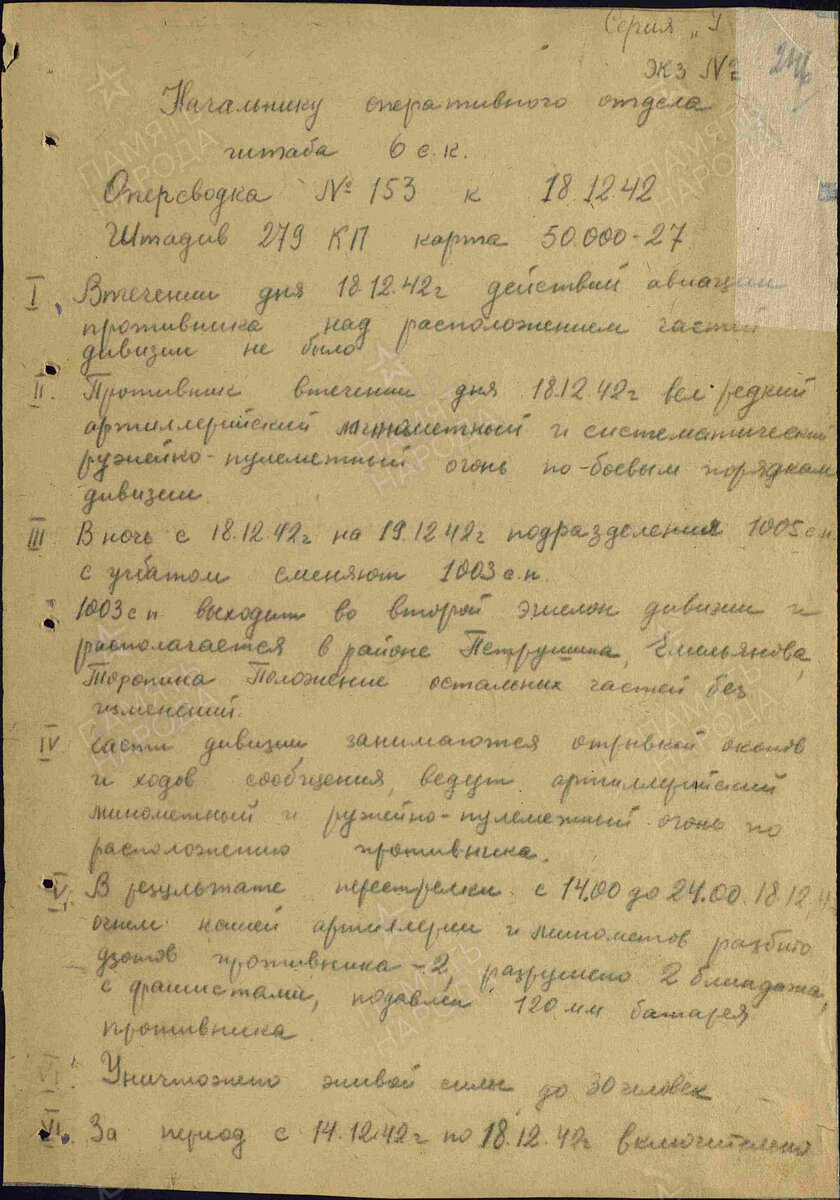 Серия "У
экз №2
Начальнику оперативного отдела
штаба 6 с.к.
Оперсводка № 153 к 18.12.42
Штадив 279 КП карта 50.000-27
I. Втечении дня 18.12.42г действий авиации
противника над расположением частей
дивизии не было
II. Противник втечении дня 18.12.42г вел редкий
артиллерийский минометный и систематический
ружейно-пулеметный огонь по боевым порядкам
дивизии.
III В ночь с 18.12.42г на 19.12.42г подразделения 1005 сп
с учбатом сменяют 1003 с.п.
1003 с.п. выходит во второй эшелон дивизии и
располагается в районе Петрушина, Емельянова,
Торопина Положение остальных частей без
изменений.
IV Части дивизии занимаются отрывкой окопов
и ходов сообщения, ведут артиллерийский
минометный и ружейно-пулеметный огонь по
расположению противника.
V. В результате перестрелки с 14.00 до 24.00 18.12.4
огнем нашей артиллерии и минометов разбито
дзотов противника -2, разрушено 2 блиндажа,
с фашистами, подавлен 120 мм батарея
противника
VI Уничтожено живой силы до 30 человек
VI. За период с 14.12.42г по 18.12.42г включительно
ПАМЯТЬ НАРОДА